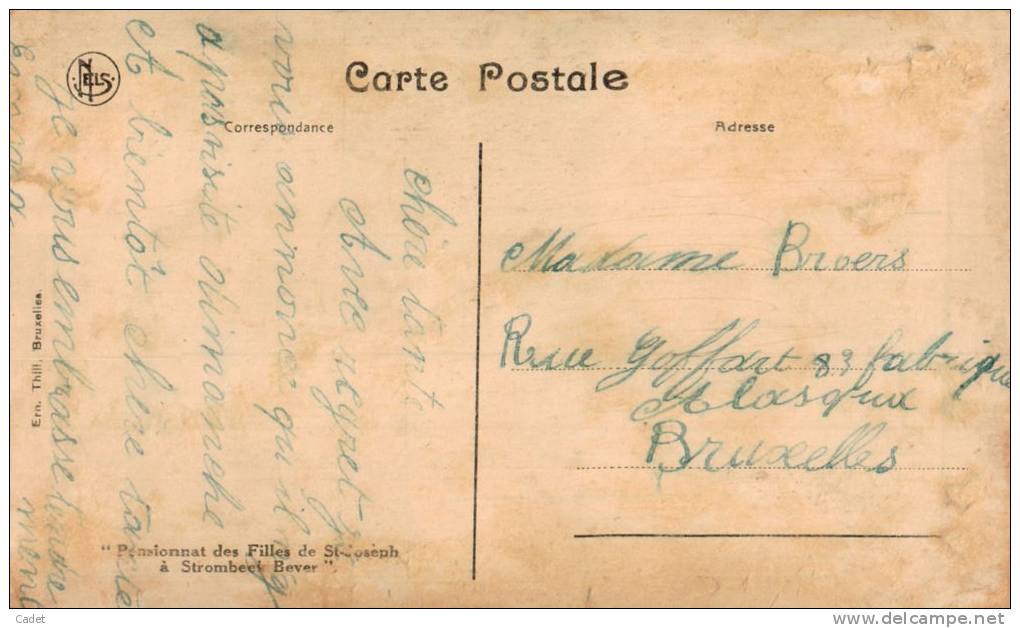 NELS
Carte Postale
Correspondance
Adresse
chère tante
Avec regret je
vous annonce qu'il n'y
a pas visite dimanche
A bientôt chère tante
Je vous embrasse tendre
ment
Madame Broers
Rue Goffart 83 fabrique
Bruxelles
Ern. Thill, Bruxelles.
" Pensionnat des Filles de St-Joseph
à Strombeek Bever "
Cadet
www.delcampe.net